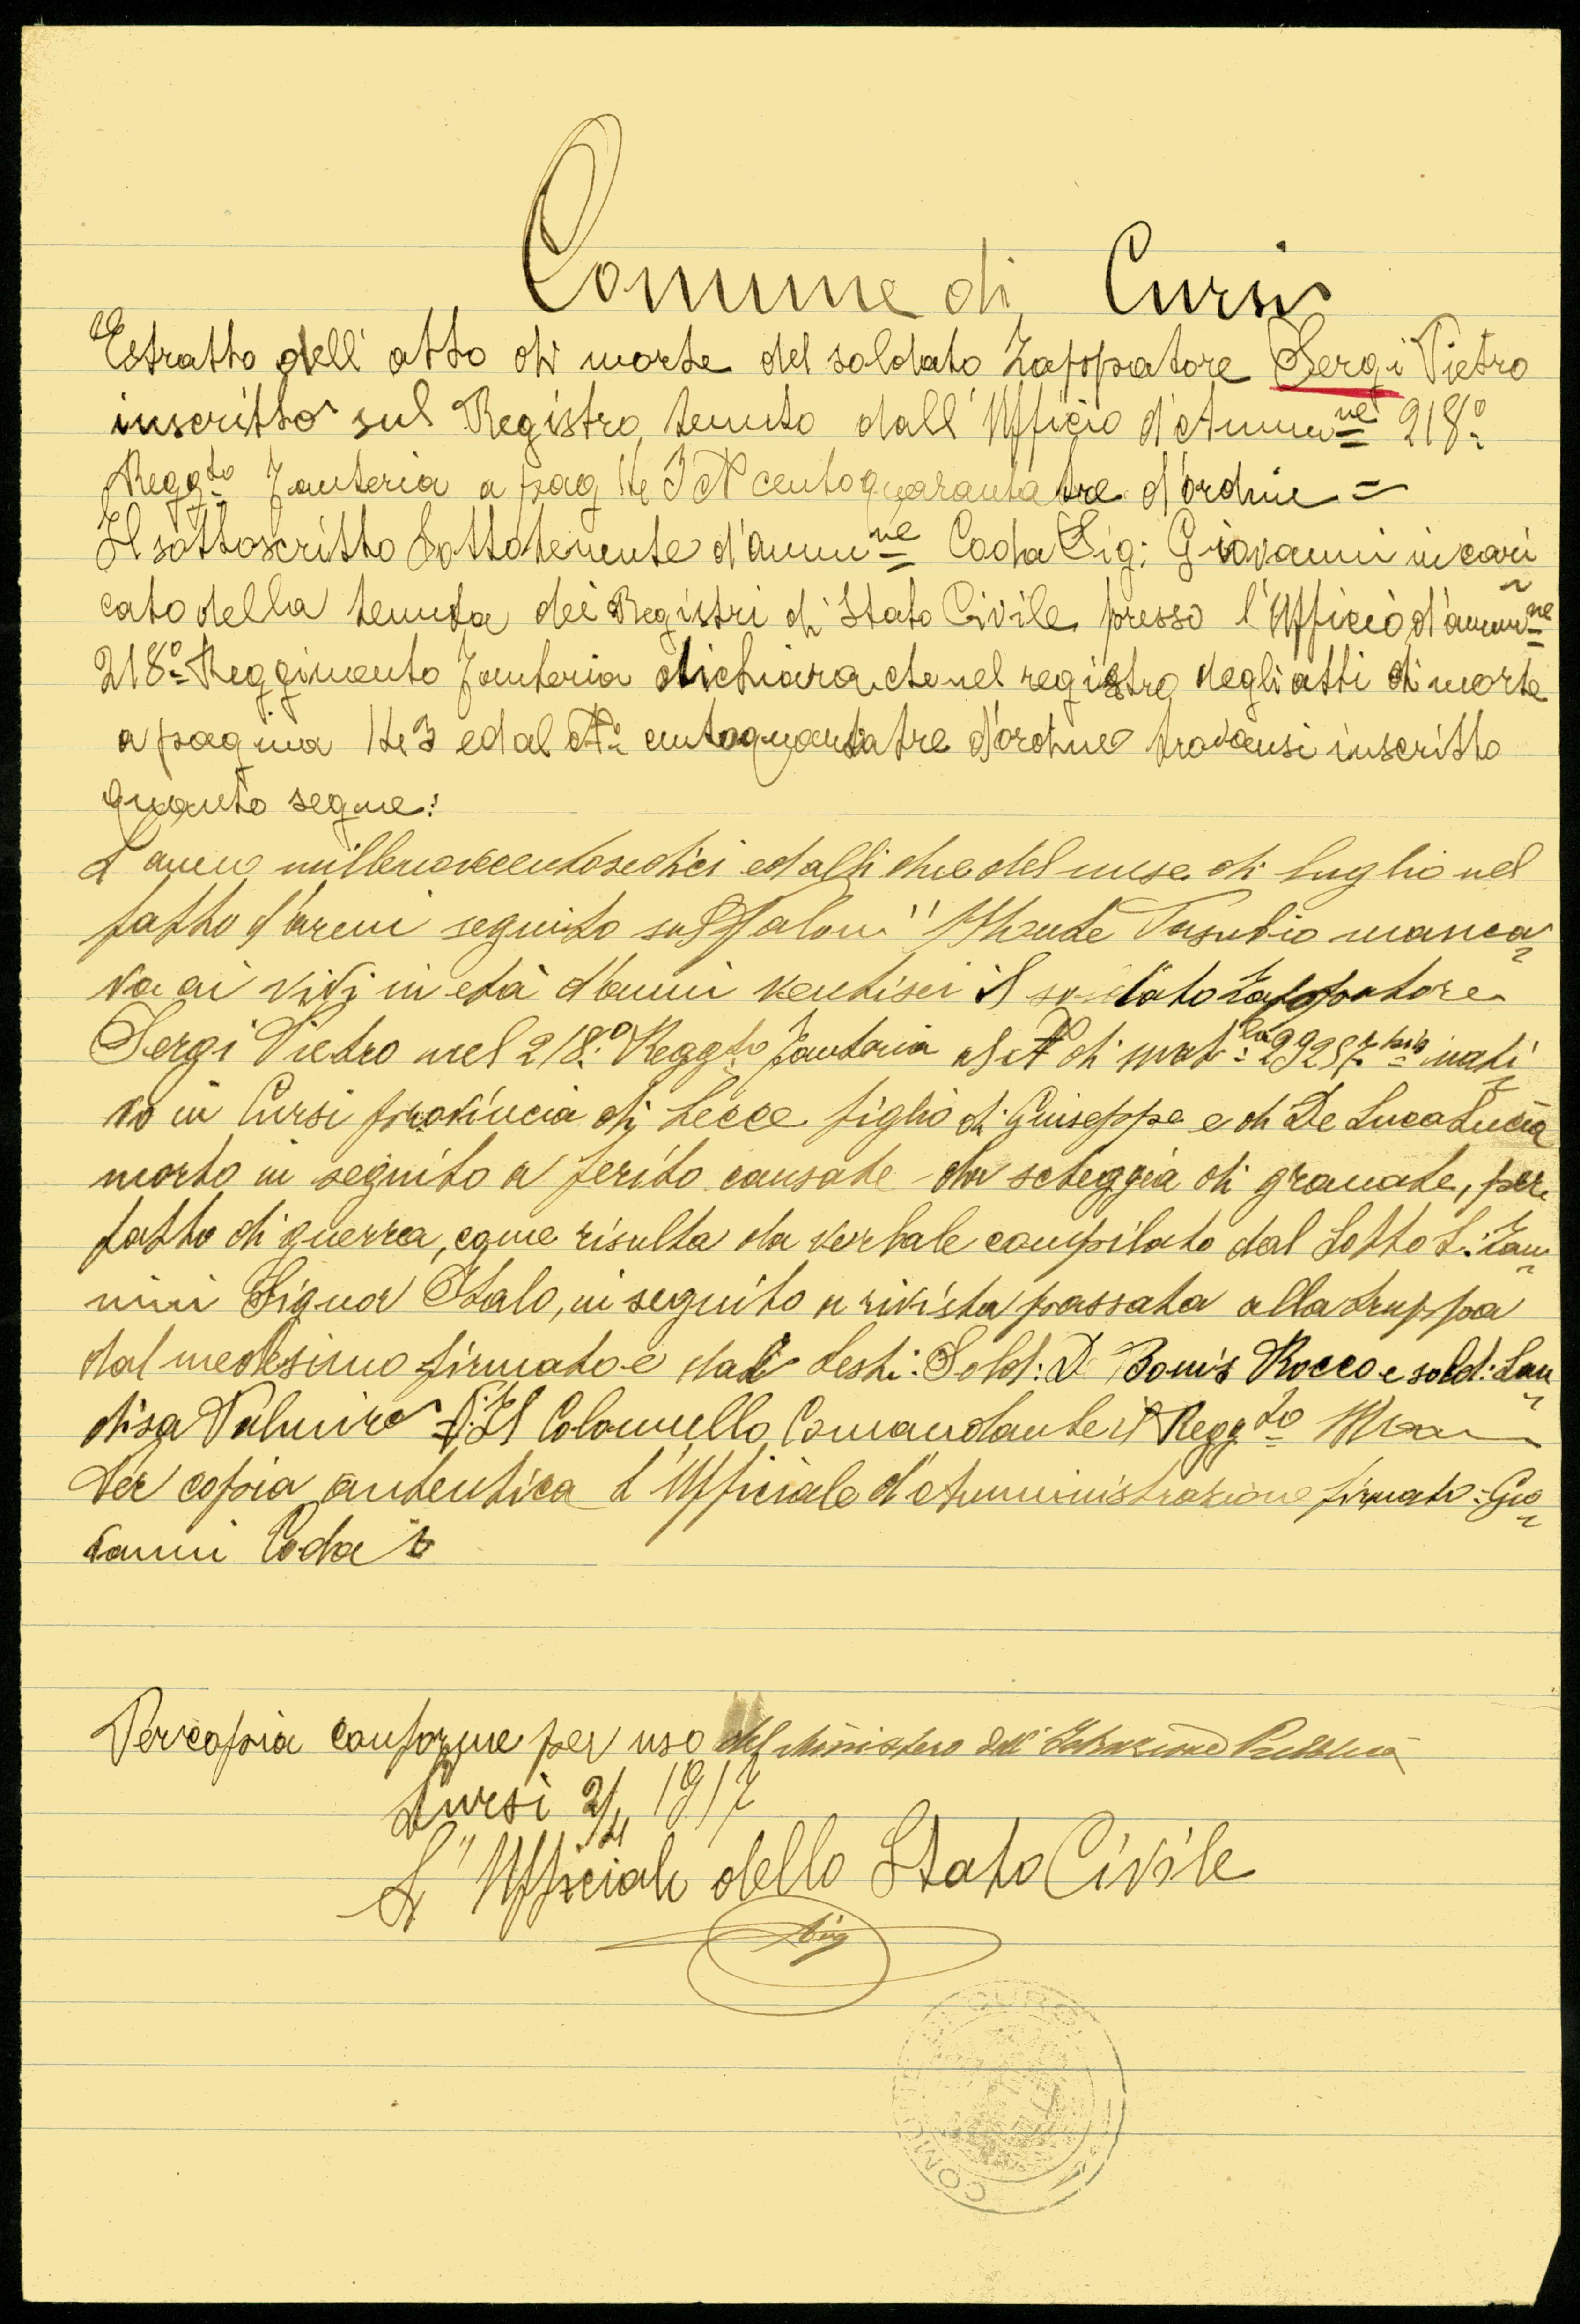 Comune di Cursi
Estratto dell'atto di morte del soldato Zappatore Sergi Pietro
inscritto sul Registro tenuto dall'Ufficio d'Ammne 218°
Reggto Fanteria a pag 143 N centoquarantatre d'ordine =
Il sottoscritto Sottotenente d'ammne Coda Sig: Giovanni incari
cato della tenuta dei Registri di Stato Civile presso l'Ufficio d'ammne
218° Reggimento Fanteria dichiara che nel registro degli atti di morte
a pagina 143 ed al N° centoquarantatre d'ordine trovansi inscritto
quanto segue:
L'anno millenovecentosedici ed alli due del mese di luglio nel
fatto d'armi seguito Monte Pasubio manca
va ai vivi in età d'anni ventisei il soldato Zappatore
Sergi Pietro nel 218° Reggto Fanteria al N di mat nati
vo in Cursi provincia di Lecce figlio di Guiseppe e di De Luca Lucia
morto in seguito a ferito causate da scheggia di granate, per
fatto di guerra, come risulta da verbale compilato dal Sotto T: Zan
nini Signor Italo, in seguito a rivista passata alla truppa
dal medesimo firmato e dai testi: Sold: D Bonis Rocco e sold: Lan
disa Palmiro Il Colonnello Comandante il Reggto
Per copia autentica L'Ufficiale d'Amministrazione firmato: Gio
vanni Coda
Per copia conforme per uso del Ministero dell'Istruzione Pubblica
Cursi 2/4 1917
L'Ufficiale dello Stato Civile
COMUNE DI CURSI